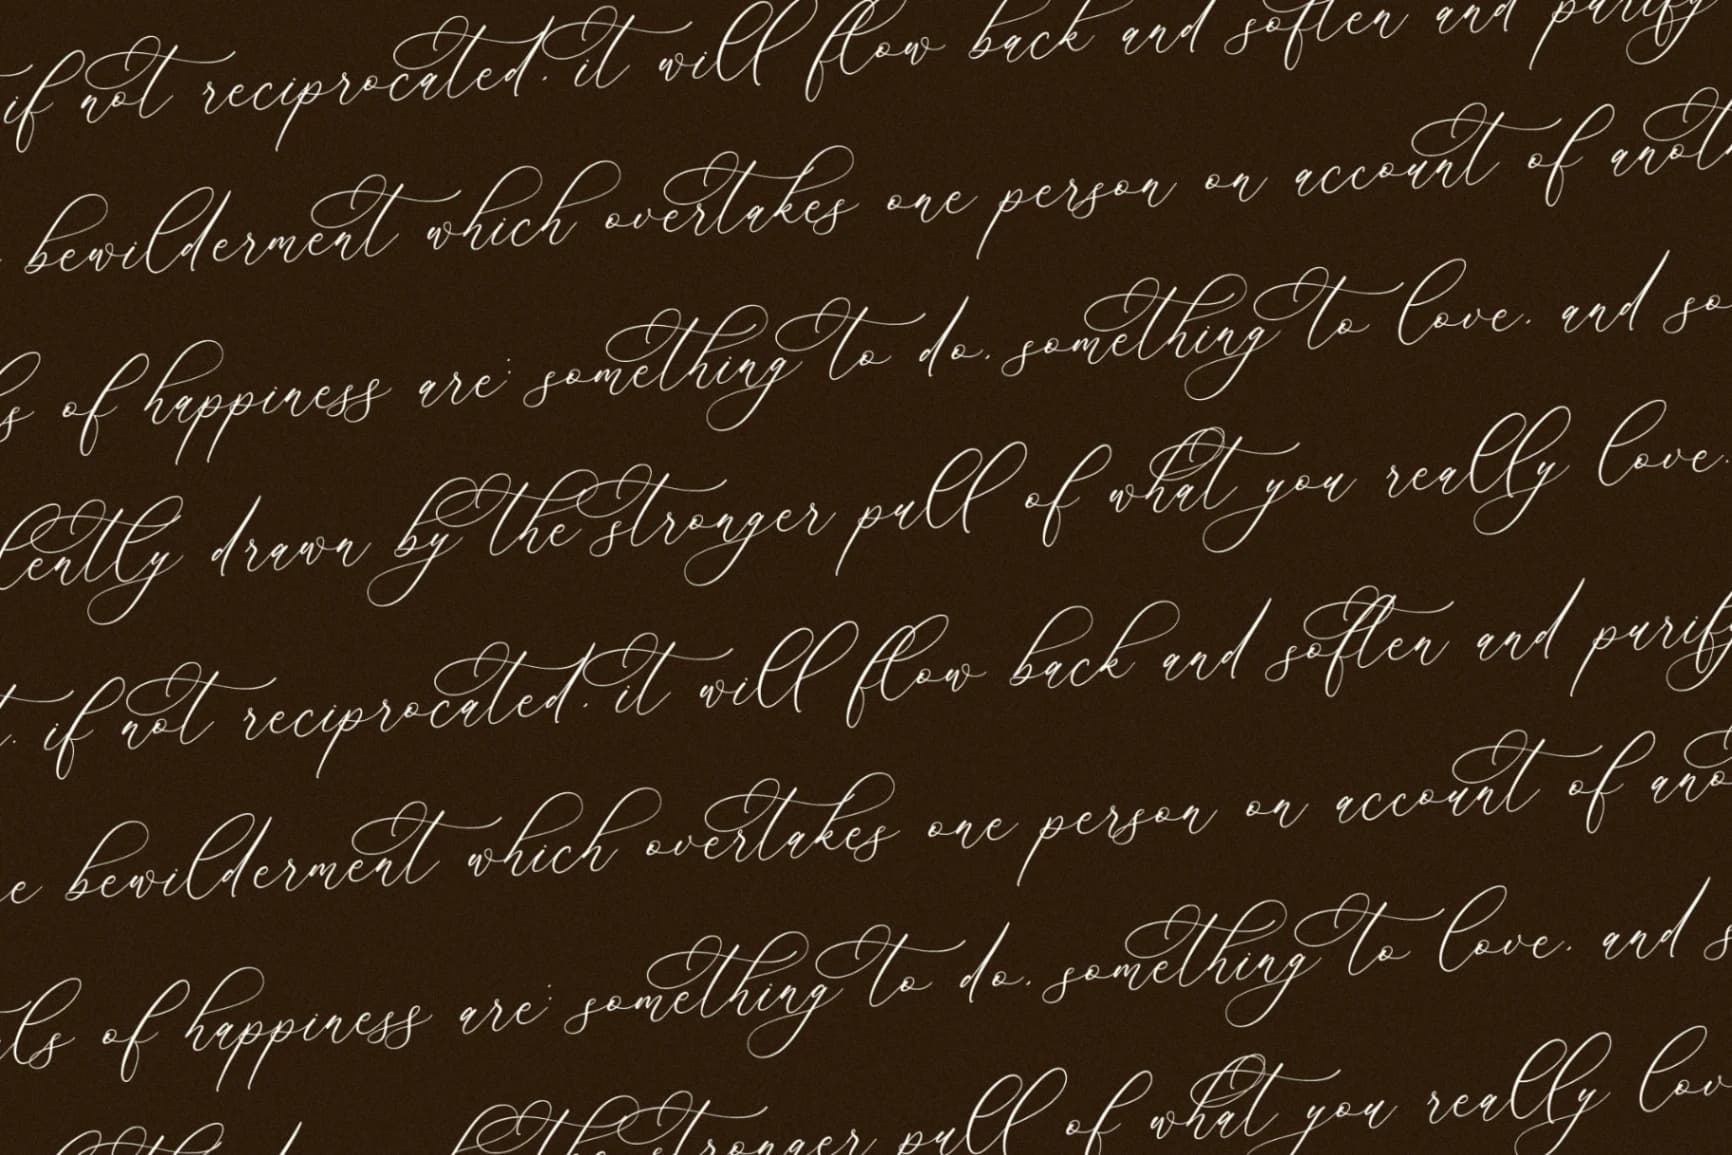 if not reciprocated, it will flow back and soften and purify
bewilderment which overtakes one person on account of
of happiness are: something to do, something to love, and
drawn by the stronger pull of what you really love.
if not reciprocated, it will flow back and soften and
bewilderment which overtakes one person on account of
of happiness are: something to do, something to love, and
stronger pull of what you really